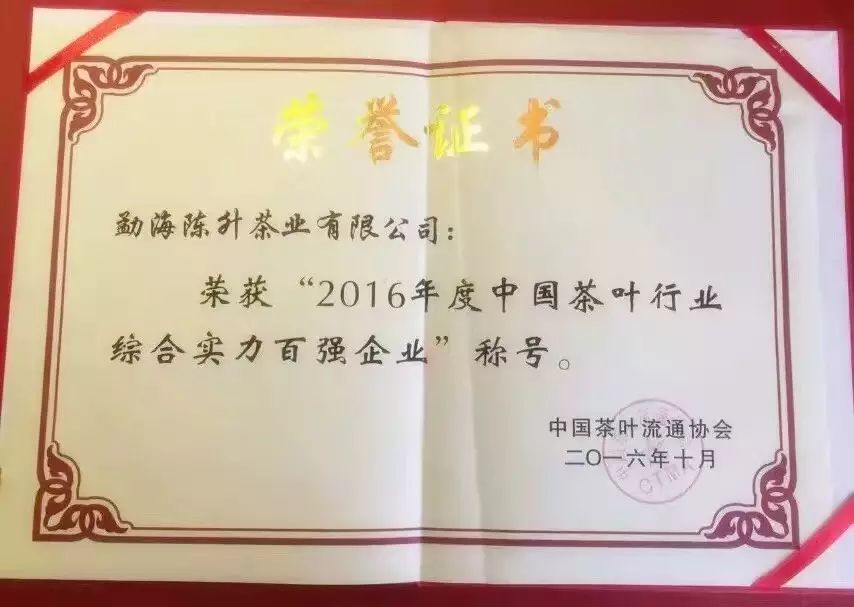 荣誉证书
勐海陈升茶业有限公司：
荣获“2016年度中国茶叶行业
综合实力百强企业”称号。
中国茶叶流通协会
二〇一六年十月